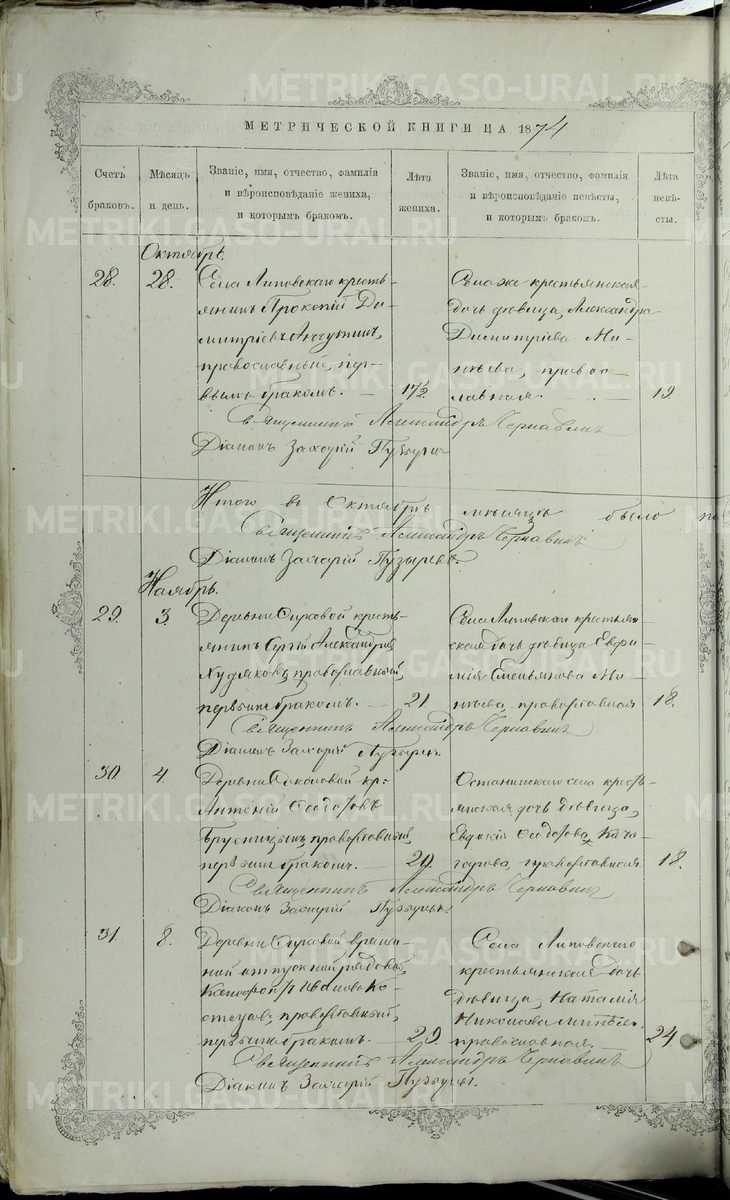 МЕТРИЧЕСКОЙ КНИГИ НА 1874
Счетъ браковъ.
Мѣсяцъ и день.
Званіе, имя, отчество, фамилія
и вѣроисповѣданіе жениха,
и которымъ бракомъ.
Лѣта жениха.
Званіе, имя, отчество, фамилія
и вѣроисповѣданіе невѣсты,
и которымъ бракомъ.
Лѣта невѣ-
сты.
Октябрь.
28.
28.
Села Липовскаго кресть-
янинъ Прокопій Ди-
митріевъ
православный, пер-
вымъ бракомъ.
17½
Села же крестьянская
дочь дѣвица Александра
Димитріева Ми-
нѣева, правос-
лавная
19
Священникъ Александръ Чернавинъ
Діаконъ Захарій Пузырев
Итого въ Октябрѣ мѣсяцѣ было по
Священникъ Александръ Чернавинъ
Діаконъ Захарій Пузыревъ.
Ноябрь.
29.
3
Деревни кресть-
янинъ Сергій
Худяковъ, православный,
первымъ бракомъ.
21.
Села Липовскаго крестьян-
ская дочь дѣвица Евфи-
мія Емельянова Ми-
нѣева, православная
18.
Священникъ Александръ Чернавинъ
Діаконъ Захарій Пузырев
30.
4.
Деревни Соколовой кр.
Антоній Ѳеодотовъ
Брусницынъ, православный,
первымъ бракомъ.
20.
Останинскаго села кресть-
янская дочь дѣвица,
Евдокія Ѳеодотова
православная
18.
Священникъ Александръ Чернавинъ
Діаконъ Захарій Пузырев
31.
8.
Деревни
отпускной рядовой
Ксенофонтъ Ивановъ
православный,
первымъ бракомъ.
29.
Села Липовскаго
крестьянская дочь
дѣвица, Наталія
Николаева Минѣева,
православная.
24.
Священникъ Александръ Чернавинъ
Діаконъ Захарій Пузырев.
METRIKI.GASO-URAL.RU